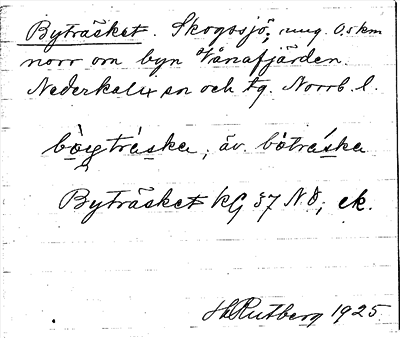 Byträsket. Skogssjö, ung. 0,5 km
norr om byn Vånafjärden.
Nederkalix sn och tg. Norrb. l.
träska, äv. bòtráska
Byträsket kG 37 NÖ; ek.
Hh Rutberg 1925.